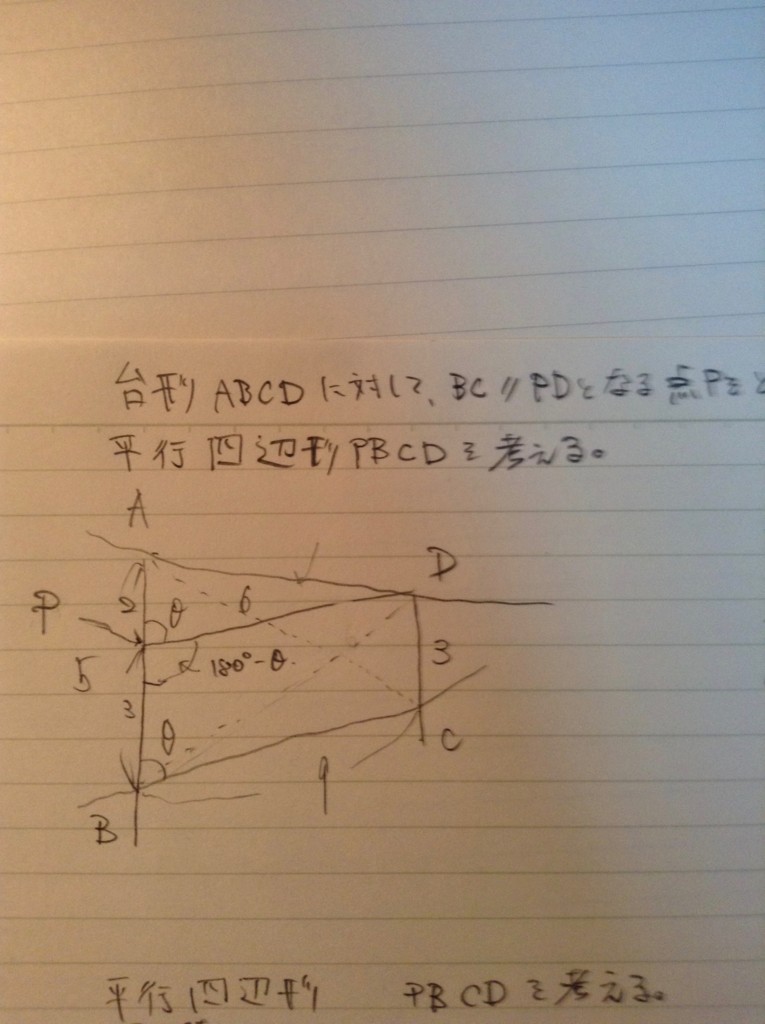 台形ABCDに対して、BC // PDとなる点Pをと
平行四辺形PBCDを考える。
A
D
2
θ
6
P
5
180°-θ.
3
3
θ
C
B
平行四辺形 PBCDを考える。